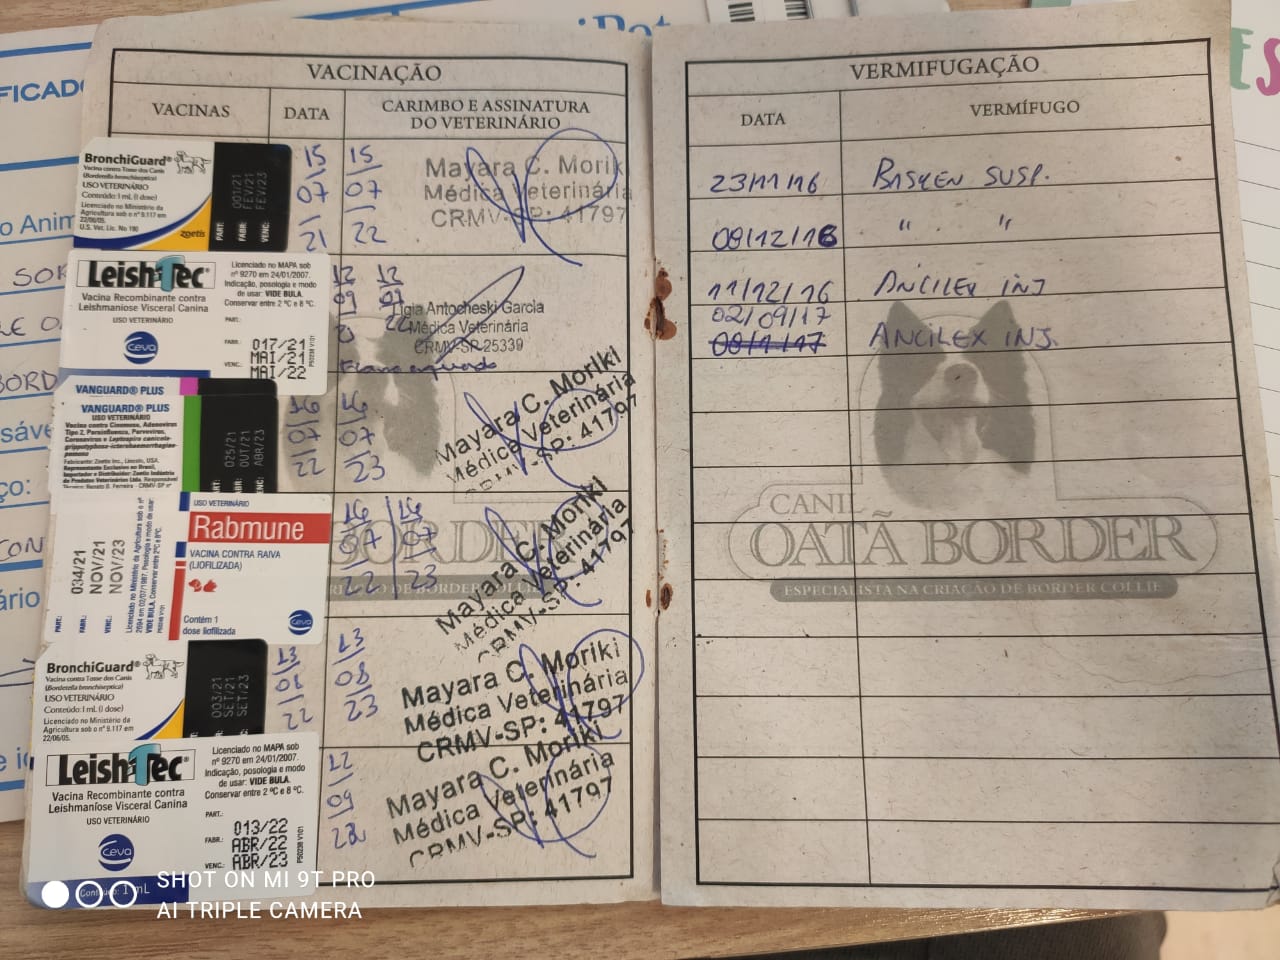 FICADO
VACINAÇÃO
VACINAS
DATA
CARIMBO E ASSINATURA
DO VETERINÁRIO
BronchiGuard®
Vacina contra Tosse dos Canis
(Bordetella bronchiseptica)
USO VETERINÁRIO
Conteúdo: 1 mL (1 dose)
Licenciado no Ministério da
Agricultura sob o nº 9.117 em
22/06/05.
U.S. Vet. Lic. No 190
zoetis
PART:
FABR:
VENC:
001/21
FEV/21
FEV/23
15
07
21
15
07
22
Mayara C. Morik
Médica Veterinária
CRMV-SP: 41797
o Anim
LeishTec®
Vacina Recombinante contra
Leishmaniose Visceral Canina
USO VETERINÁRIO
Ceva
Licenciado no MAPA sob
nº 9270 em 24/01/2007.
Indicação, posologia e modo
de usar: VIDE BULA.
Conservar entre 2 ºC e 8 ºC.
PART.:
FABR.:
VENC.:
017/21
MAI/21
MAI/22
P50238 V101
12
09
12
09
22
Ligia Antocheski Garcia
Médica Veterinária
CRMV-SP 25339
BORD
VANGUARD® PLUS
VANGUARD® PLUS
USO VETERINÁRIO
Vacina contra Cinomose, Adenovirus
Tipo 2, Parainfluenza, Parvovirus,
Coronavirus e Leptospira canicola-
grippotyphosa-icterohaemorrhagiae-
pomona
Fabricante: Zoetis Inc., Lincoln, USA.
Representante Exclusivo no Brasil,
Importador e Distribuidor: Zoetis Indústria
de Produtos Veterinários Ltda. Responsável
025/21
OUT/21
ABR/23
VENC:
16
07
22
16
07
23
Mayara C. Moriki
Médica Veterinária
CRMV-SP: 41797
034/21
NOV/21
NOV/23
PART.:
FABR.:
VENC.:
USO VETERINÁRIO
Rabmune
VACINA CONTRA RAIVA
(LIOFILIZADA)
Contém 1
dose liofilizada
Ceva
16
07
22
16
07
23
Mayara C. Moriki
Médica Veterinária
CRMV-SP: 41797
BronchiGuard®
Vacina contra Tosse dos Canis
(Bordetella bronchiseptica)
USO VETERINÁRIO
Conteúdo: 1 mL (1 dose)
Licenciado no Ministério da
Agricultura sob o nº 9.117 em
22/06/05.
003/21
SET/21
SET/23
13
08
22
13
08
23
Mayara C. Moriki
Médica Veterinária
CRMV-SP: 41797
LeishTec®
Vacina Recombinante contra
Leishmaniose Visceral Canina
USO VETERINÁRIO
Ceva
Licenciado no MAPA sob
nº 9270 em 24/01/2007.
Indicação, posologia e modo
de usar: VIDE BULA.
Conservar entre 2 ºC e 8 ºC.
PART.:
FABR.:
VENC.:
013/22
ABR/22
ABR/23
P50238 V101
12
09
22
Mayara C. Moriki
Médica Veterinária
CRMV-SP: 41797
VERMIFUGAÇÃO
DATA
VERMÍFUGO
23/11/16 BASKEN SUSP.
09/12/16 " "
11/12/16 ANCILEX INJ
02/09/17
08/1/17 ANCILEX INJ.
CANIL
OATÃ BORDER
ESPECIALISTA NA CRIAÇÃO DE BORDER COLLIE
ES
SHOT ON MI 9T PRO
AI TRIPLE CAMERA